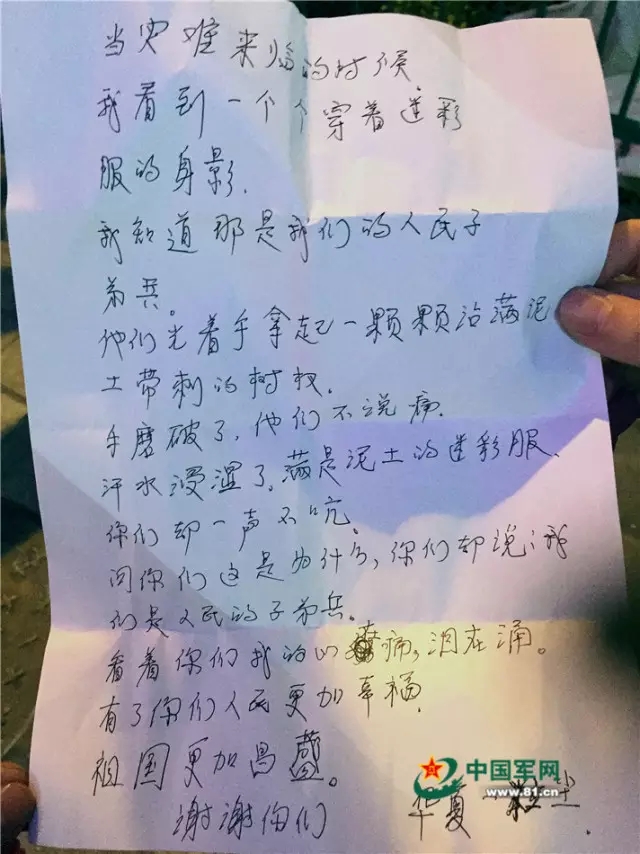 当灾难来临的时候
我看到一个个穿着迷彩
服的身影.
我知道那是我们的人民子
弟兵。
他们光着手拿起一颗颗沾满泥
土带刺的树杈.
手磨破了,他们不说痛.
汗水浸湿了。满是泥土的迷彩服、
你们却一声不吭.
问你们这是为什么,你们却说:我
们是人民的子弟兵。
看着你们我的心 痛,泪在涌。
有了你们人民更加幸福.
祖国更加昌盛。
谢谢你们 华夏一粒尘
中国军网
www.81.cn